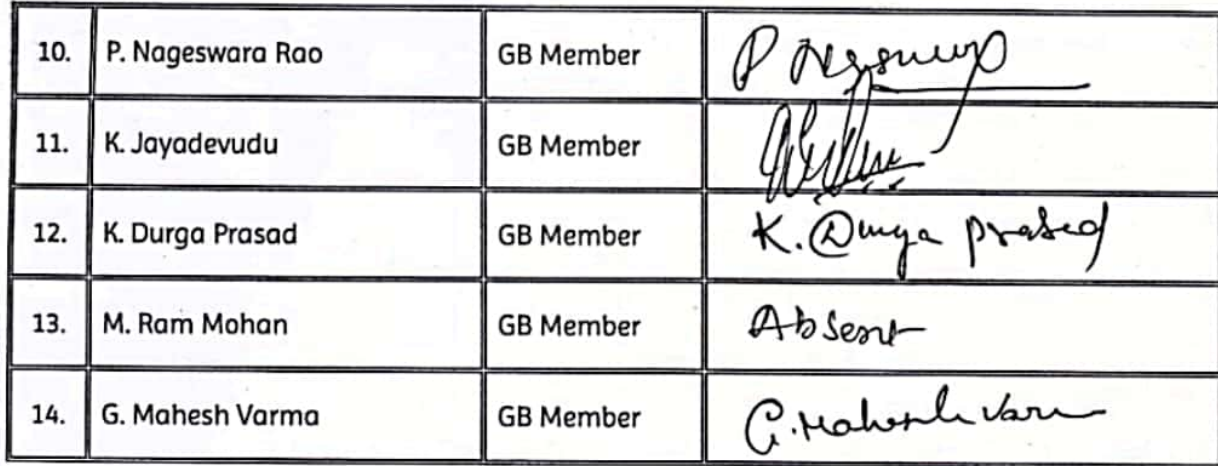 10. P. Nageswara Rao GB Member P Nageswap
11. K. Jayadevudu GB Member
12. K. Durga Prasad GB Member K. Durga prasad
13. M. Ram Mohan GB Member Absent
14. G. Mahesh Varma GB Member G. Mahesh Varm